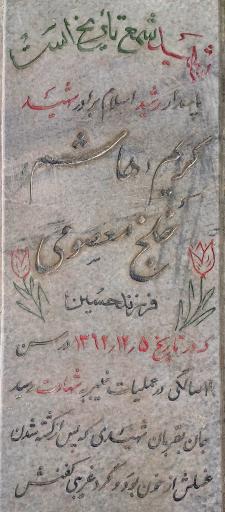 شهید شمع تاریخ است
پاسدار رشید اسلام برادر شهید
کریم (هاشم)
خلج معصومی
فرزند حسین
که در تاریخ ۱۳۶۲٫۱۲٫۵ در سن
سالگی در عملیات خیبر به شهادت رسید
جان بقربان شهیدی که پس از کشته شدن
غسلش از خون بود و گرد غریبی کفنش